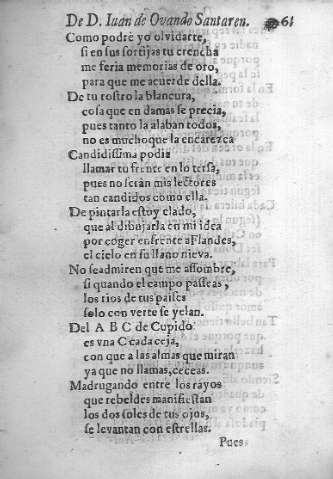 De D. Iuan de Ovando Santaren. 61
Como podrè yo olvidarte,
si en sus sortijas tu crencha
me feria memorias de oro,
para que me acuerde della.
De tu rostro la blancura,
cosa que en damas se precia,
pues tanto la alaban todos,
no es mucho que la encarezca
Candidissima podia
llamar tu frente en lo tersa,
pues no seràn mis lectores
tan candidos como ella.
De pintarla estoy elado,
que al dibujarla en mi idea
por coger enfrente a Flandes,
el cielo en su llano nieva.
No se admiren que me assombre,
si quando el campo passeas,
los rios de tus paises
solo con verte se yelan.
Del A B C de Cupido
es vna C cada ceja,
con que a las almas que miran
ya que no llamas, ceceas.
Madrugando entre los rayos
que rebeldes manifiestan
los dos soles de tus ojos,
se levantan con estrellas.
Pues